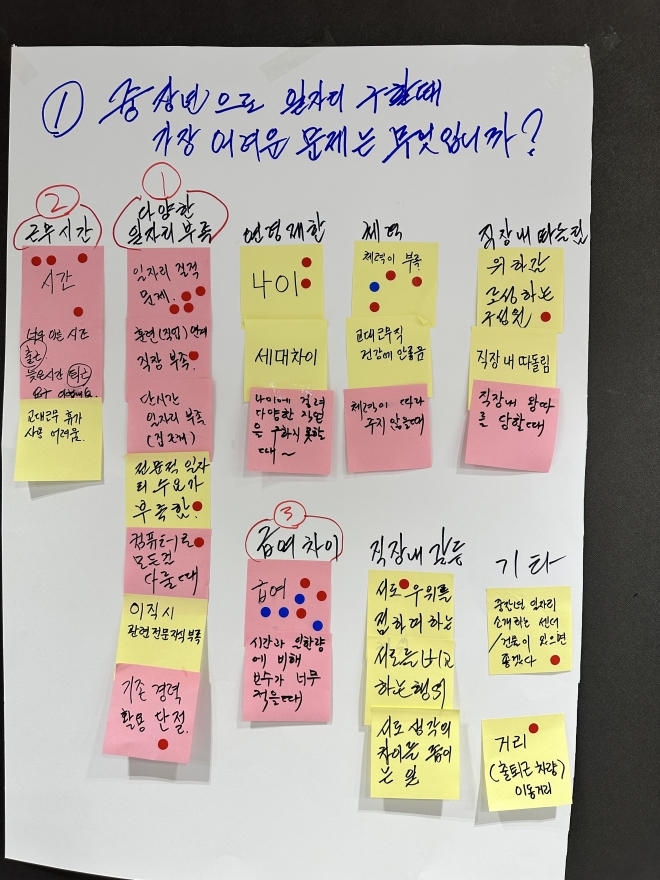 ① 중장년으로 일자리 구할때
가장 어려운 문제는 무엇입니까?
②
근무시간
시간
너무 이른 시간
출근
늦은시간 퇴근
교대근무 휴가
사용 어려움.
①
다양한
일자리 부족
일자리 질적
문제.
훈련(직업) 연계
직장 부족.
단시간
일자리 부족
전문적 일자
리 수요가
부족함.
컴퓨터로
모든걸
다룰때
이직시
관련 전문지식 부족
기존 경력
활용 단절.
연령제한
나이
세대차이
나이에 걸려
다양한 직업
은 구하지 못하는
때~
체력
체력이 부족
교대근무직
건강에 안좋음
체력이 따라
주지 않을때
직장내 따돌림
위화감
조성하는
구성원
직장 내 따돌림
직장내 왕따
를 당할때
③
급여 차이
급여
시간과 일한량
에 비해
보수가 너무
적을때
직장내 갈등
서로 우위를
점하려 하는
서로를
하는 행위
서로 생각의
차이를 좁히
는 일
기타
중장년 일자리
소개하는 센터
/건물이 있으면
좋겠다
거리
(출퇴근 차량)
이동거리